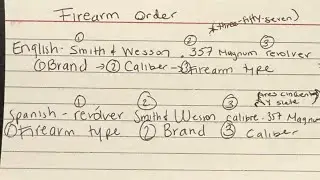 Firearm Order
* three-fifty-seven)
① ② ③
English- Smith & Wesson .357 Magnum revolver
① Brand → ② Caliber → ③ Firearm type
① ② ③
Spanish - revólver Smith & Wesson calibre .357 Magnum
① Firearm type ② Brand ③ Caliber